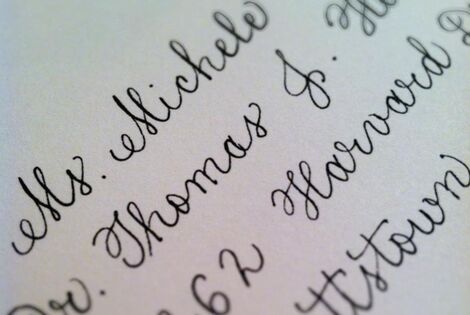 Ms. Michele
Dr. Thomas J.
62 Harvard